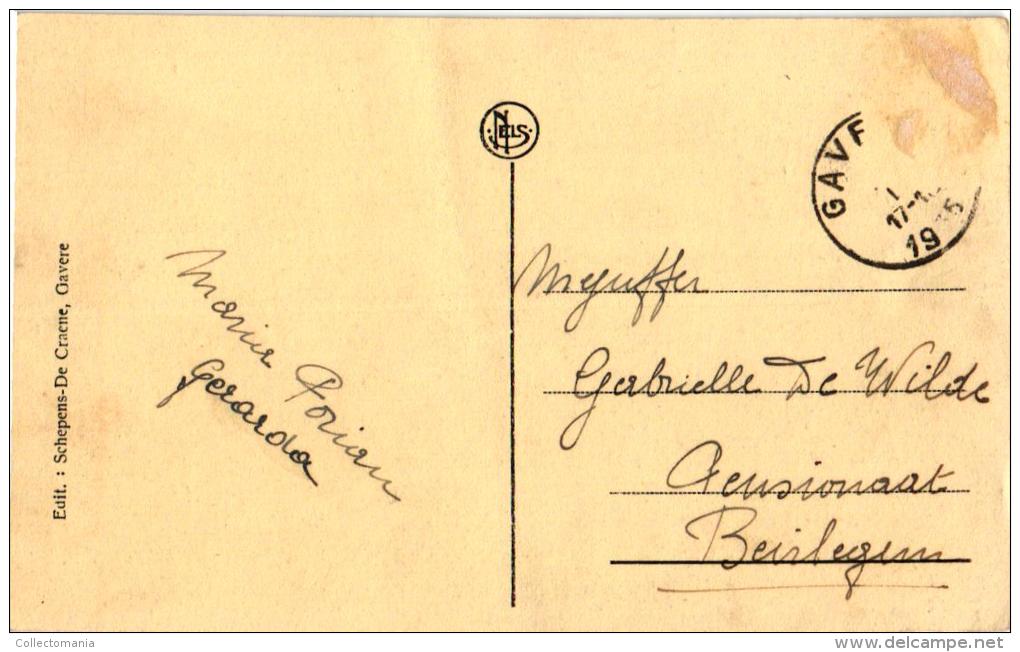 NELS
GAVE
17-1
19 5
Edit. : Schepens-De Craene, Gavere
Maria
Gerarda
Mejuffer
Gabrielle De Wilde
Pensionaat
Beirlegem
Collectomania
www.delcampe.net